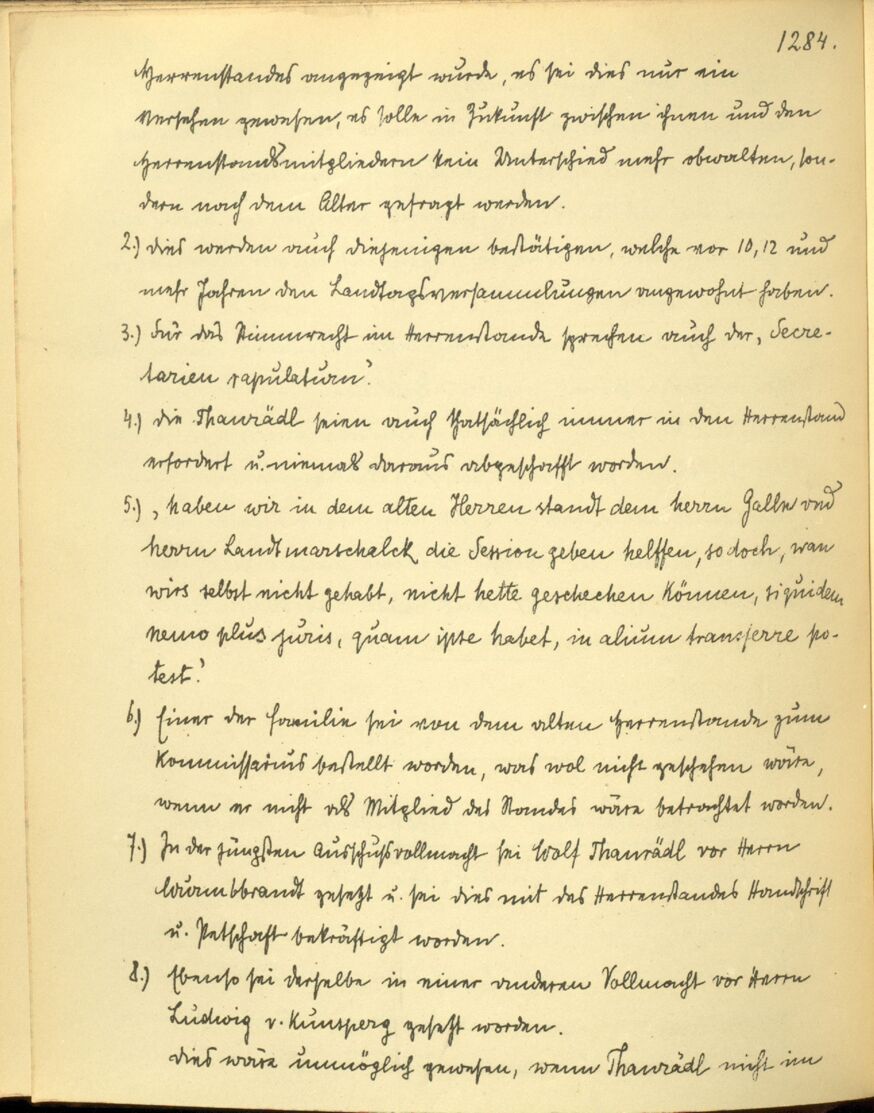 1284.
Herrenstandes angezeigt wurde, es sei dies nur ein
Versehen gewesen, es solle in Zukunft zwischen ihnen und den
Herrenstandsmitgliedern kein Unterschied mehr obwalten, son-
dern nach dem Alter gefragt werden.
2.) Dies werden auch diejenigen bestätigen, welche vor 10, 12 und
mehr Jahren den Landtagsversammlungen angewohnt haben.
3.) Für das Stimmrecht im Herrenstande sprechen auch der „Secre-
tarien rapulaturn“.
4.) Die Thanrädl seien auch thatsächlich immer in den Herrenstand
erfordert u. niemals daraus abgeschafft worden.
5.) „haben wir in dem alten Herren standt dem herrn Galln vnd
herrn Landtmarschalck die Session geben helffen, so doch, wan
wirs selbst nicht gehabt, nicht hette geschechen können, siquidem
nemo plus juris, quam ipse habet, in alium transferre po-
test“.
6.) Einer der Familie sei von dem alten Herrenstande zum
Kommissarius bestellt worden, was wol nicht geschehen wäre,
wenn er nicht als Mitglied des Standes wäre betrachtet worden.
7.) In der jüngsten Ausschußvollmacht sei Wolf Thanrädl vor Herrn
Wurmbbrandt gesetzt u. sei dies mit des Herrenstandes Handschrift
u. Petschaft bekräftigt worden.
8.) Ebenso sei derselbe in einer anderen Vollmacht vor Herrn
Ludwig v. Kunsperg gesetzt worden.
Dies wäre unmöglich gewesen, wenn Thanrädl nicht im